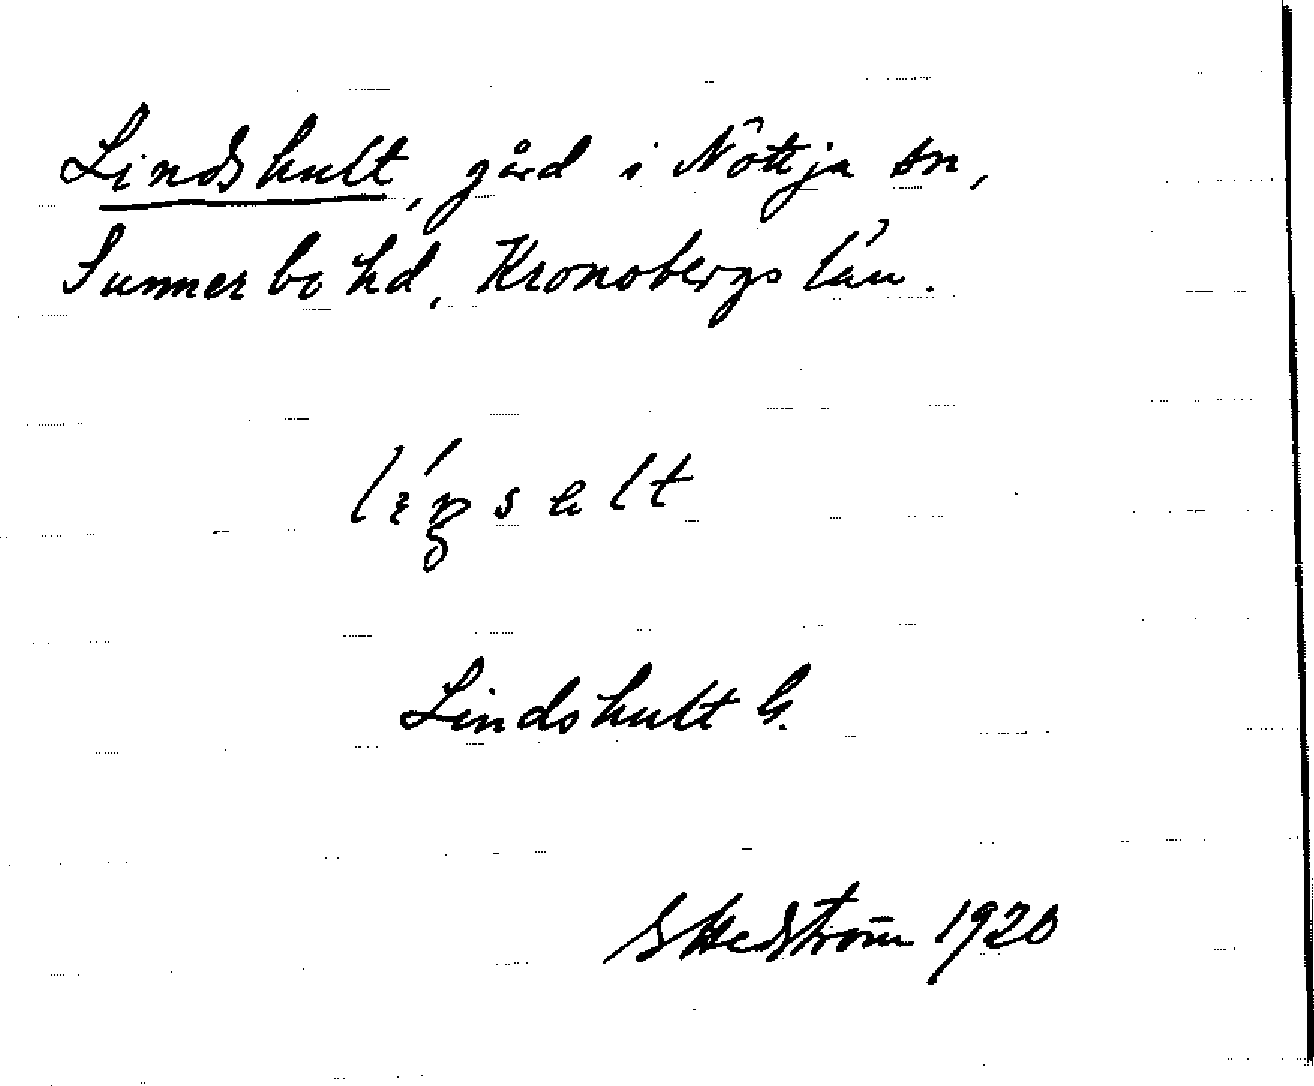 Lindshult, gård i Nöttja sn,
Sunnerbo hd, Kronobergs län.
Lindshult G.
Hedström 1920